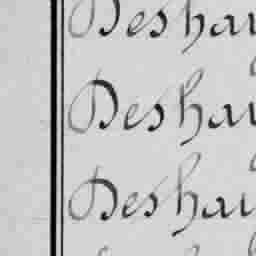 Deshau
Deshau
Deshau